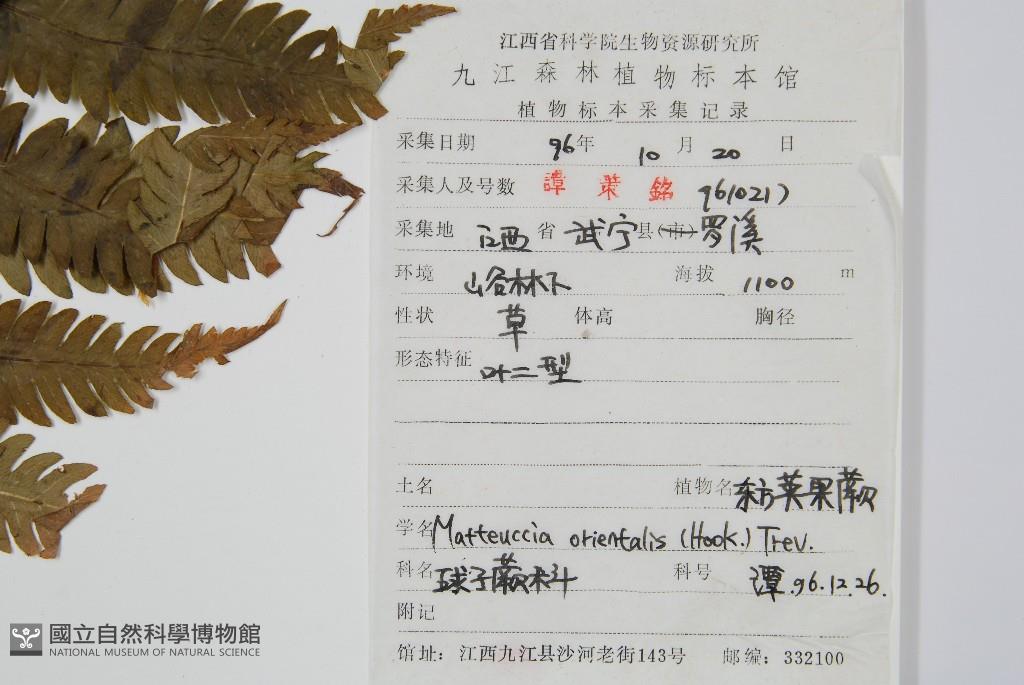 江西省科学院生物资源研究所
九江森林植物标本馆
植物标本采集记录
采集日期 96年 10 月 20 日
采集人及号数 譚策銘 9610217
采集地 江西 省 武宁 县(市) 罗溪
环境 山谷林下 海拔 1100 m
性状 草 体高 胸径
形态特征 叶二型
土名 植物名 东方荚果蕨
学名 Matteuccia orientalis (Hook.) Trev.
科名 球子蕨科 科号 譚.96.12.26.
附记
馆址：江西九江县沙河老街143号 邮编：332100
國立自然科學博物館
NATIONAL MUSEUM OF NATURAL SCIENCE